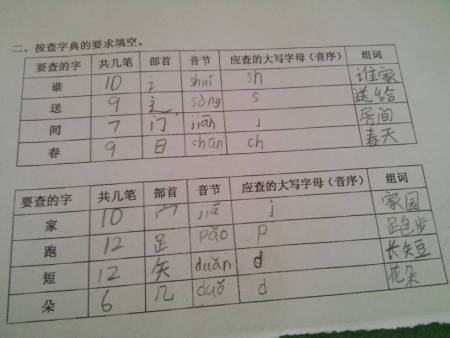 二、按查字典的要求填空。
要查的字 共几笔 部首 音节 应查的大写字母(音序) 组词
谁 10 讠 shuí sh 谁家
送 9 辶 sòng s 送给
间 7 门 jiān j 房间
春 9 日 chūn ch 春天
要查的字 共几笔 部首 音节 应查的大写字母(音序) 组词
家 10 宀 jiā j 家园
跑 12 足 pǎo p 跑步
短 12 矢 duǎn d 长短
朵 6 几 duǒ d 花朵